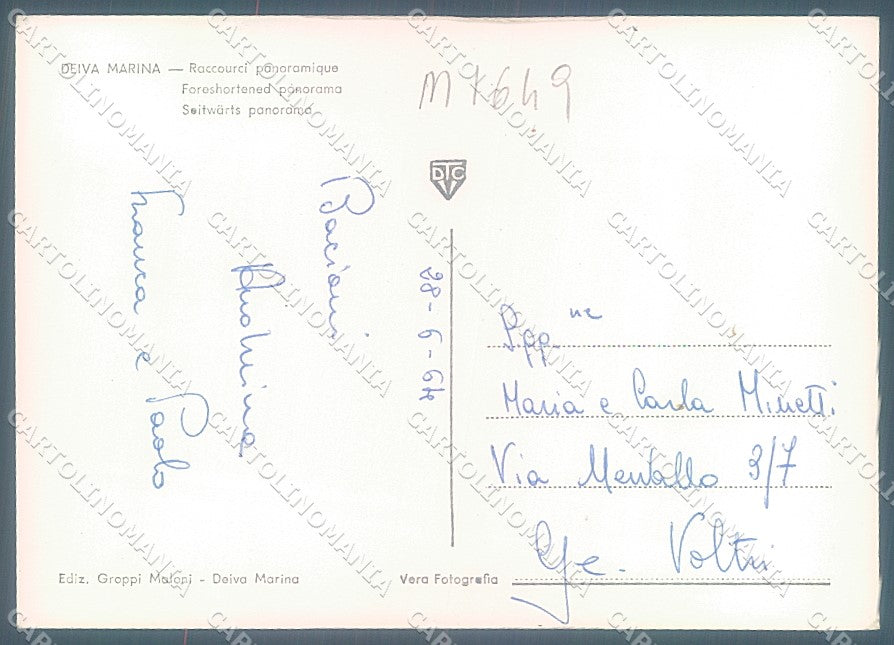 DEIVA MARINA — Raccourci panoramique
Foreshortened panorama
Seitwärts panorama
M1649
DTC
Bacioni
Andreina
Franca e Paolo
28-6-64
Sigg.ne
Maria e Carla Minetti
Via Mentallo 3/7
Ge. Voltri
Ediz. Groppi Maloni - Deiva Marina
Vera Fotografia
CARTOLINOMANIA